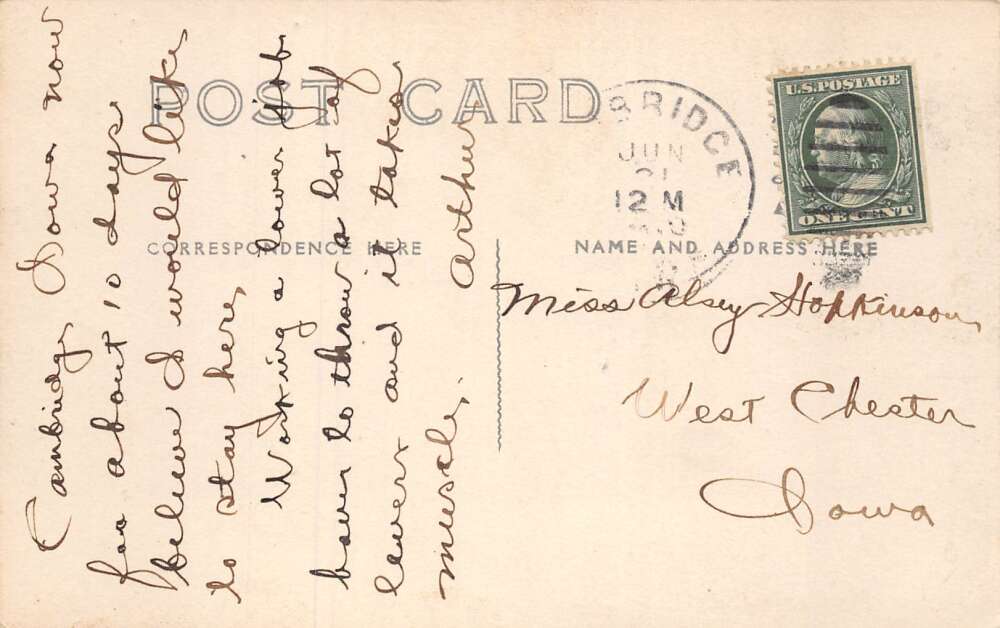 POST CARD
CORRESPONDENCE HERE
NAME AND ADDRESS HERE
U.S. POSTAGE
ONE CENT
BRIDGE
JUN
21
12 M
Cambridge, Iowa now
for about 10 days
believe I would like
to stay here,
Working a lower job.
have to throw a lot of
levers and it takes
muscle. Arthur
Miss Alsey Hopkinson,
West Chester
Iowa